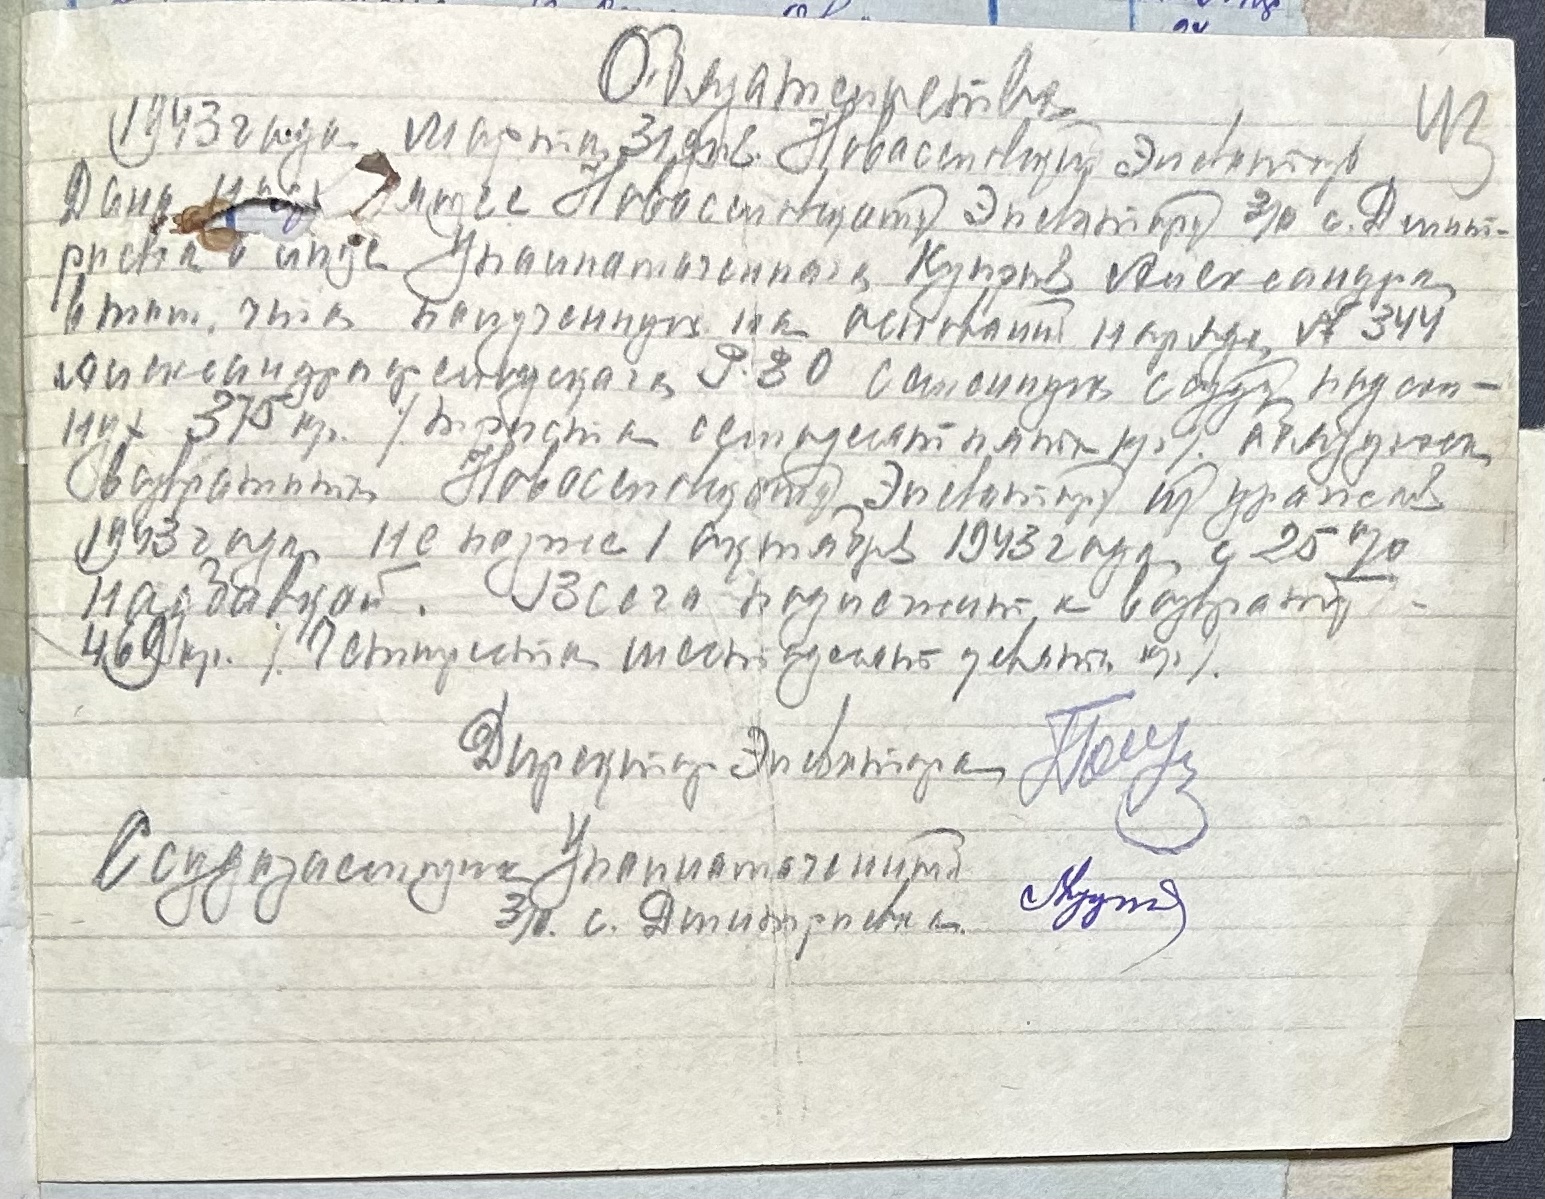 Обязательства
1943 года Марта 31 дня. Новоселовский Элеватор
Дана нас Новоселовскому Элеватору з/о с. Дмит-
риевка в лице Уполномоченного Куцов Александра
в том, что полученную на основании наряда № 344
Александрфельдского Р.ЗО семенную ссуду подсол-
нух 375 кг. /триста семьдесят пять кг/. обязуюсь
возвратить Новоселовскому Элеватору из урожая
1943 года не позже 1 октября 1943 года с 25 %
надбавкой. Всего подлежит к возврату -
469 кг. /Четыреста шестьдесят девять кг/.
Директор Элеватора
Ссудозаемщик Уполномоченный
з/о. с. Дмитриевка.